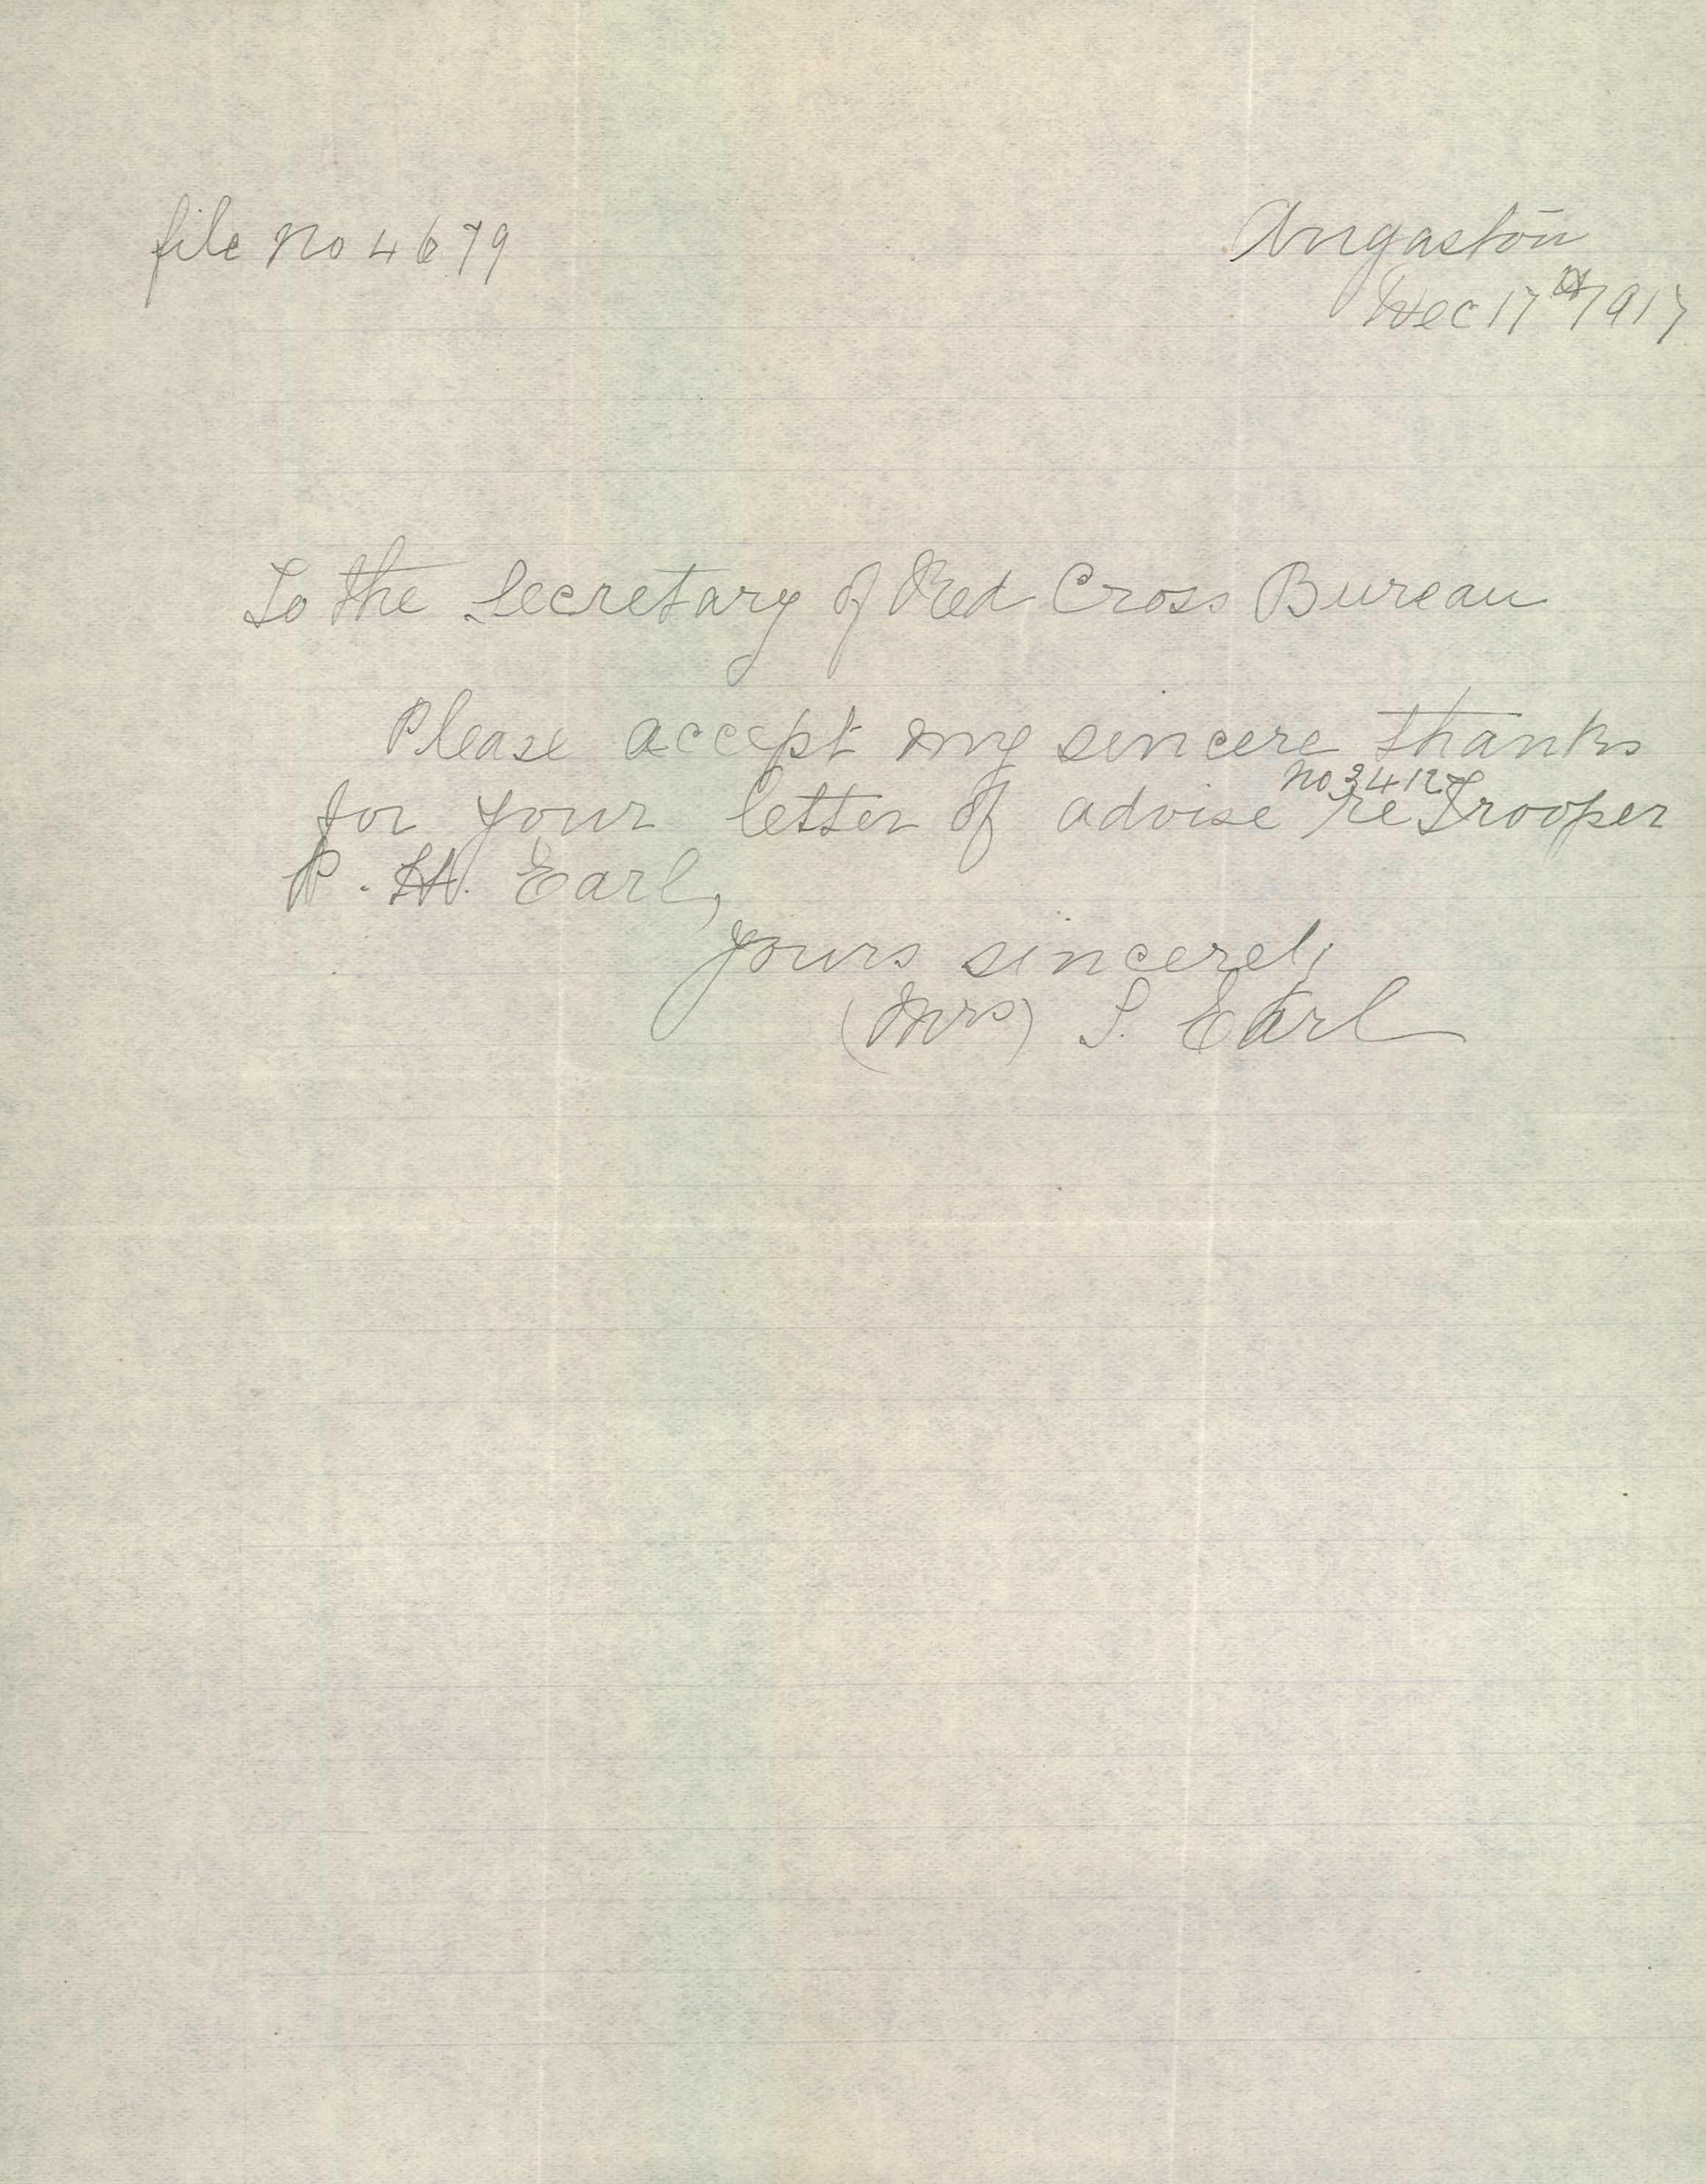 file no 4679
Angaston
Dec 17th 1917
To the Secretary of Red Cross Bureau
Please accept my sincere thanks
no 3412
for your letter of advise re Trooper
P. H. Earl,
yours sincerely
(Mrs) S. Earl